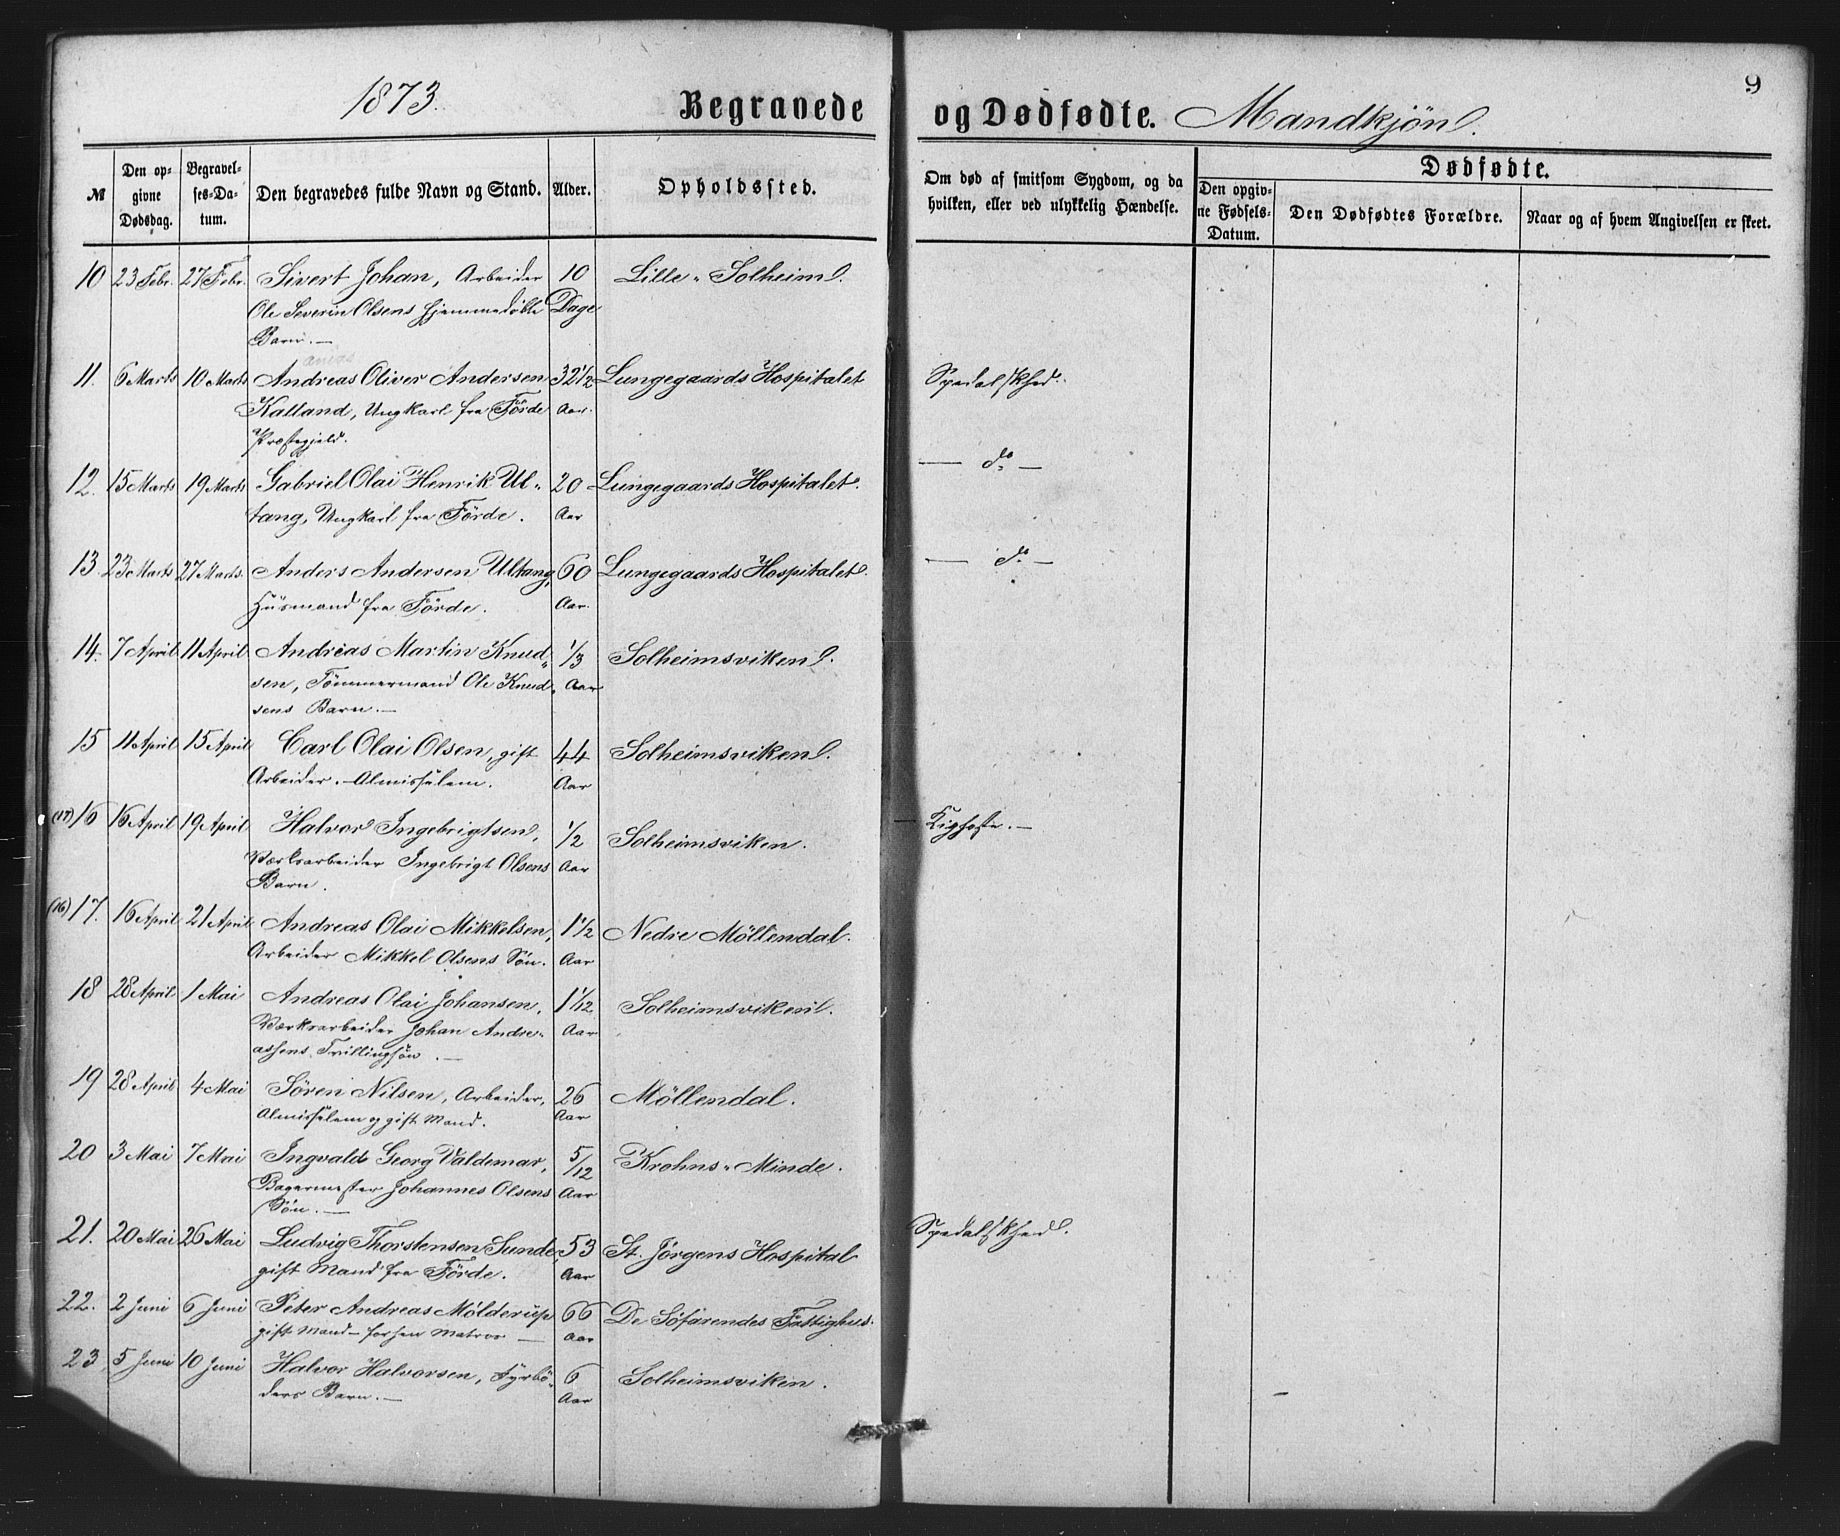 1873.
Begravede
og Dødfødte. Mandkjøn.
9
№
Den opgivne Dødsdag.
Begravelses-Datum.
Den begravedes fulde Navn og Stand.
Alder.
Opholdssted.
Om død af smitsom Sygdom, og da hvilken, eller ved ulykkelig Hændelse.
Dødfødte.
Den opgivne Fødsels-Datum.
Den Dødfødtes Forældre.
Naar og af hvem Angivelsen er skeet.
10 23 Febr. 27 Febr. Sivert Johan, Arbeider 10 Lille-Solheim.
Ole Severin Olsens hjemmedøbte Dage
Barn.—
11. 6 Marts 10 Marts Andreas Oliver Andersen 32 1/2 Lungegaards Hospitalet Spedalskhed.
Kalland, Ungkarl fra Förde Aar.
Præstegjeld.
12. 15 Marts 19 Marts Gabriel Olai Henrik Ul- 20 Lungegaards Hospitalet. — do —
tang, Ungkarl fra Förde. Aar
13. 23 Marts 27 Marts. Anders Andersen Ultang, 60 Lungegaards Hospitalet. — do —
Huusmand fra Förde. Aar.
14. 7 April 11 April Andreas Martin Knud- 1/3 Solheimsviken.
sen, Tömmermand Ole Knud- Aar
sens Barn.—
15 11 April 15 April Carl Olai Olsen, gift 44 Solheimsviken.
Arbeider.—Almisselem. Aar
(17) 16 16 April 19 April Halvor Ingebrigtsen, 1/2 Solheimsviken. Kighoste.—
Værksarbeider Ingebrigt Olsens Aar
Barn.
(16) 17. 16 April 21 April Andreas Olai Mikkelsen, 1 1/2 Nedre Möllendal.
Arbeider Mikkel Olsens Sön. Aar
18 28 April 1 Mai Andreas Olai Johansen, 1 1/12 Solheimsviken.
Værksarbeider Johan Andre- Aar
assens Tvillingsön.—
19 28 April 4 Mai Sören Nilsen, Arbeider, 26 Möllendal.
Almisselem og gift Mand. Aar
20 3 Mai 7 Mai Ingvald Georg Valdemar, 5/12 Krohns-Minde.
Bagermester Johannes Olsens Aar
Sön.—
21. 20 Mai 26 Mai Ludvig Thorstensen Sunde, 53 St. Jörgens Hospital Spedalskhed.
gift Mand fra Förde. Aar
22. 2 Juni 6 Juni Peter Andreas Mölderup 66 De Söfarendes Fattighus.
gift Mand— forhen Matros — Aar
23 5 Juni 10 Juni Halvor Halvorsen, Fyrbö- 6 Solheimsviken.
ders Barn.— Aar